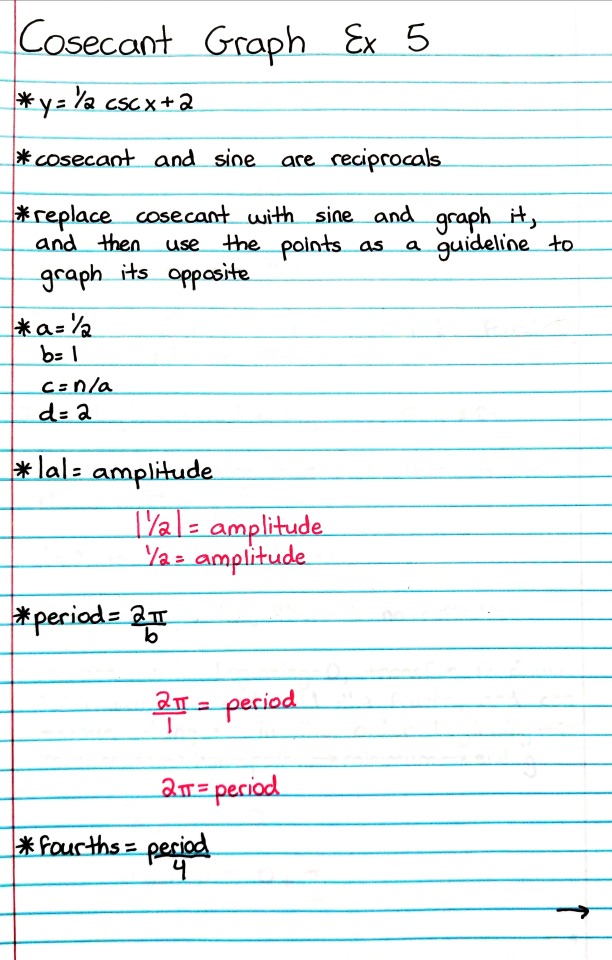 Cosecant Graph Ex 5
*y = 1/2 csc x + 2
*cosecant and sine are reciprocals
*replace cosecant with sine and graph it,
and then use the points as a guideline to
graph its opposite
*a = 1/2
b = 1
c = n/a
d = 2
*|a| = amplitude
|1/2| = amplitude
1/2 = amplitude
*period = 2π/b
2π/1 = period
2π = period
*fourths = period/4
→